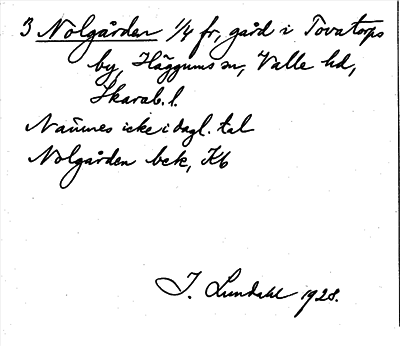 3 Nolgården 1/4 fr, gård i Tovatorps
by, Häggums sn, Valle hd,
Skarab. l.
Nämnes icke i dagl. tal
Nolgården bek, Kb
I. Lundahl 1928.